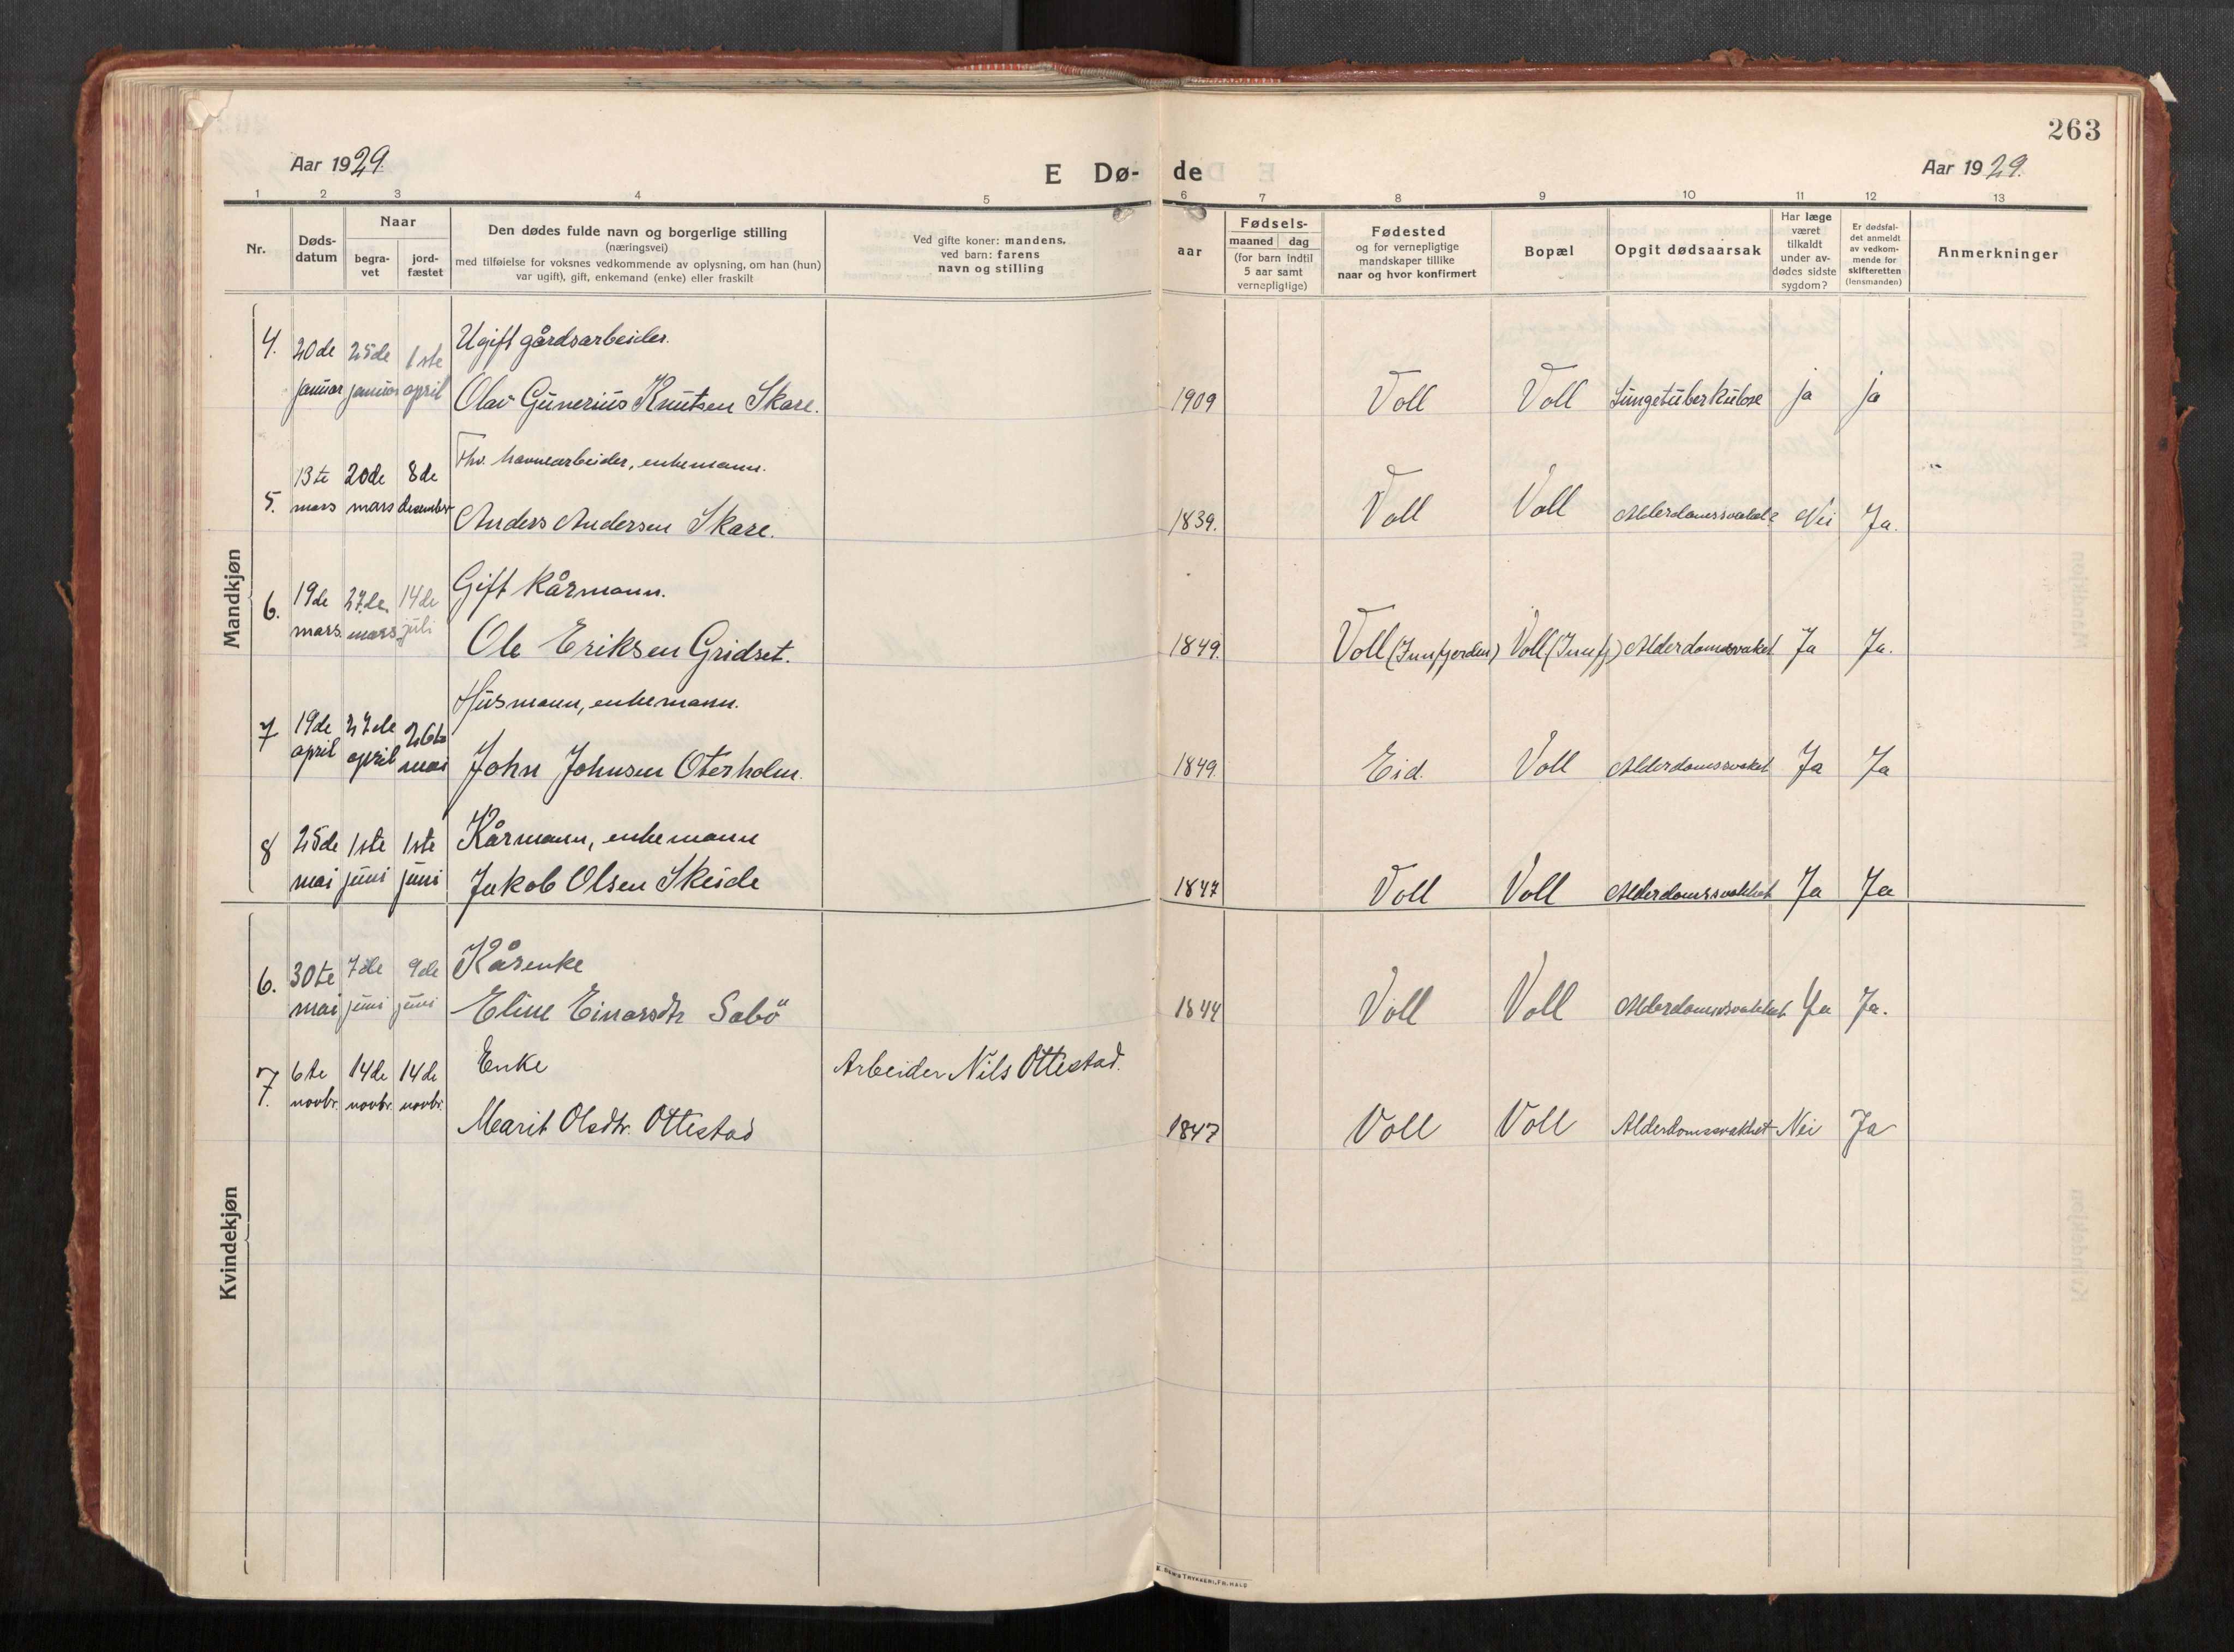 263
Aar 1929.
E Dø-
de
Aar 1929.
1 2 3 4 5 6 7 8 9 10 11 12 13
Nr.
Døds-
datum
Naar
begra-
vet
jord-
fæstet
Den dødes fulde navn og borgerlige stilling
(næringsvei)
med tilføielse for voksnes vedkommende av oplysning, om han (hun)
var ugift), gift, enkemand (enke) eller fraskilt
Ved gifte koner: mandens,
ved barn: farens
navn og stilling
aar
Fødsels-
maaned dag
(for barn indtil
5 aar samt
vernepligtige)
Fødested
og for vernepligtige
mandskaper tillike
naar og hvor konfirmert
Bopæl
Opgit dødsaarsak
Har læge
været
tilkaldt
under av-
dødes sidste
sygdom?
Er dødsfal-
det anmeldt
av vedkom-
mende for
skifteretten
(lensmanden)
Anmerkninger
Mandkjøn
4. 20de 25de 1ste Ugift gårdsarbeider.
januar januar april Olav Gunerius Knutsen Skare. 1909 Voll Voll Lungetuberkulose ja ja
13te 20de 8de Fhv. havnearbeider, enkemann.
5. mars mars desember Anders Andersen Skare. 1839. Voll Voll Alderdomssvakh? Nei Ja.
6. 19de 27de 14de Gift kårmann.
mars. mars. juli Ole Eriksen Gridset. 1849. Voll (Innfjorden) Voll (Innfj) Alderdomssvaket Ja Ja.
7 19de 27de 26te Husmann, enkemann.
april april mai John Johnsen Oterholm. 1849. Eid. Voll Alderdomssvaket Ja Ja
8 25de 1ste 1ste Kårmann, enkemann
mai juni juni Jakob Olsen Skeide 1847 Voll Voll Alderdomssvakhet Ja Ja
Kvindekjøn
6. 30te 7de 9de Kårenke
mai juni juni Eline Einarsdtr Sabö 1844 Voll Voll Alderdomssvakhet Ja Ja.
7. 6te 14de 14de Enke Arbeider Nils Ottestad.
novbr. novbr. novbr. Marit Olsdtr. Ottestad 1847 Voll Voll Alderdomssvakhet Nei Ja